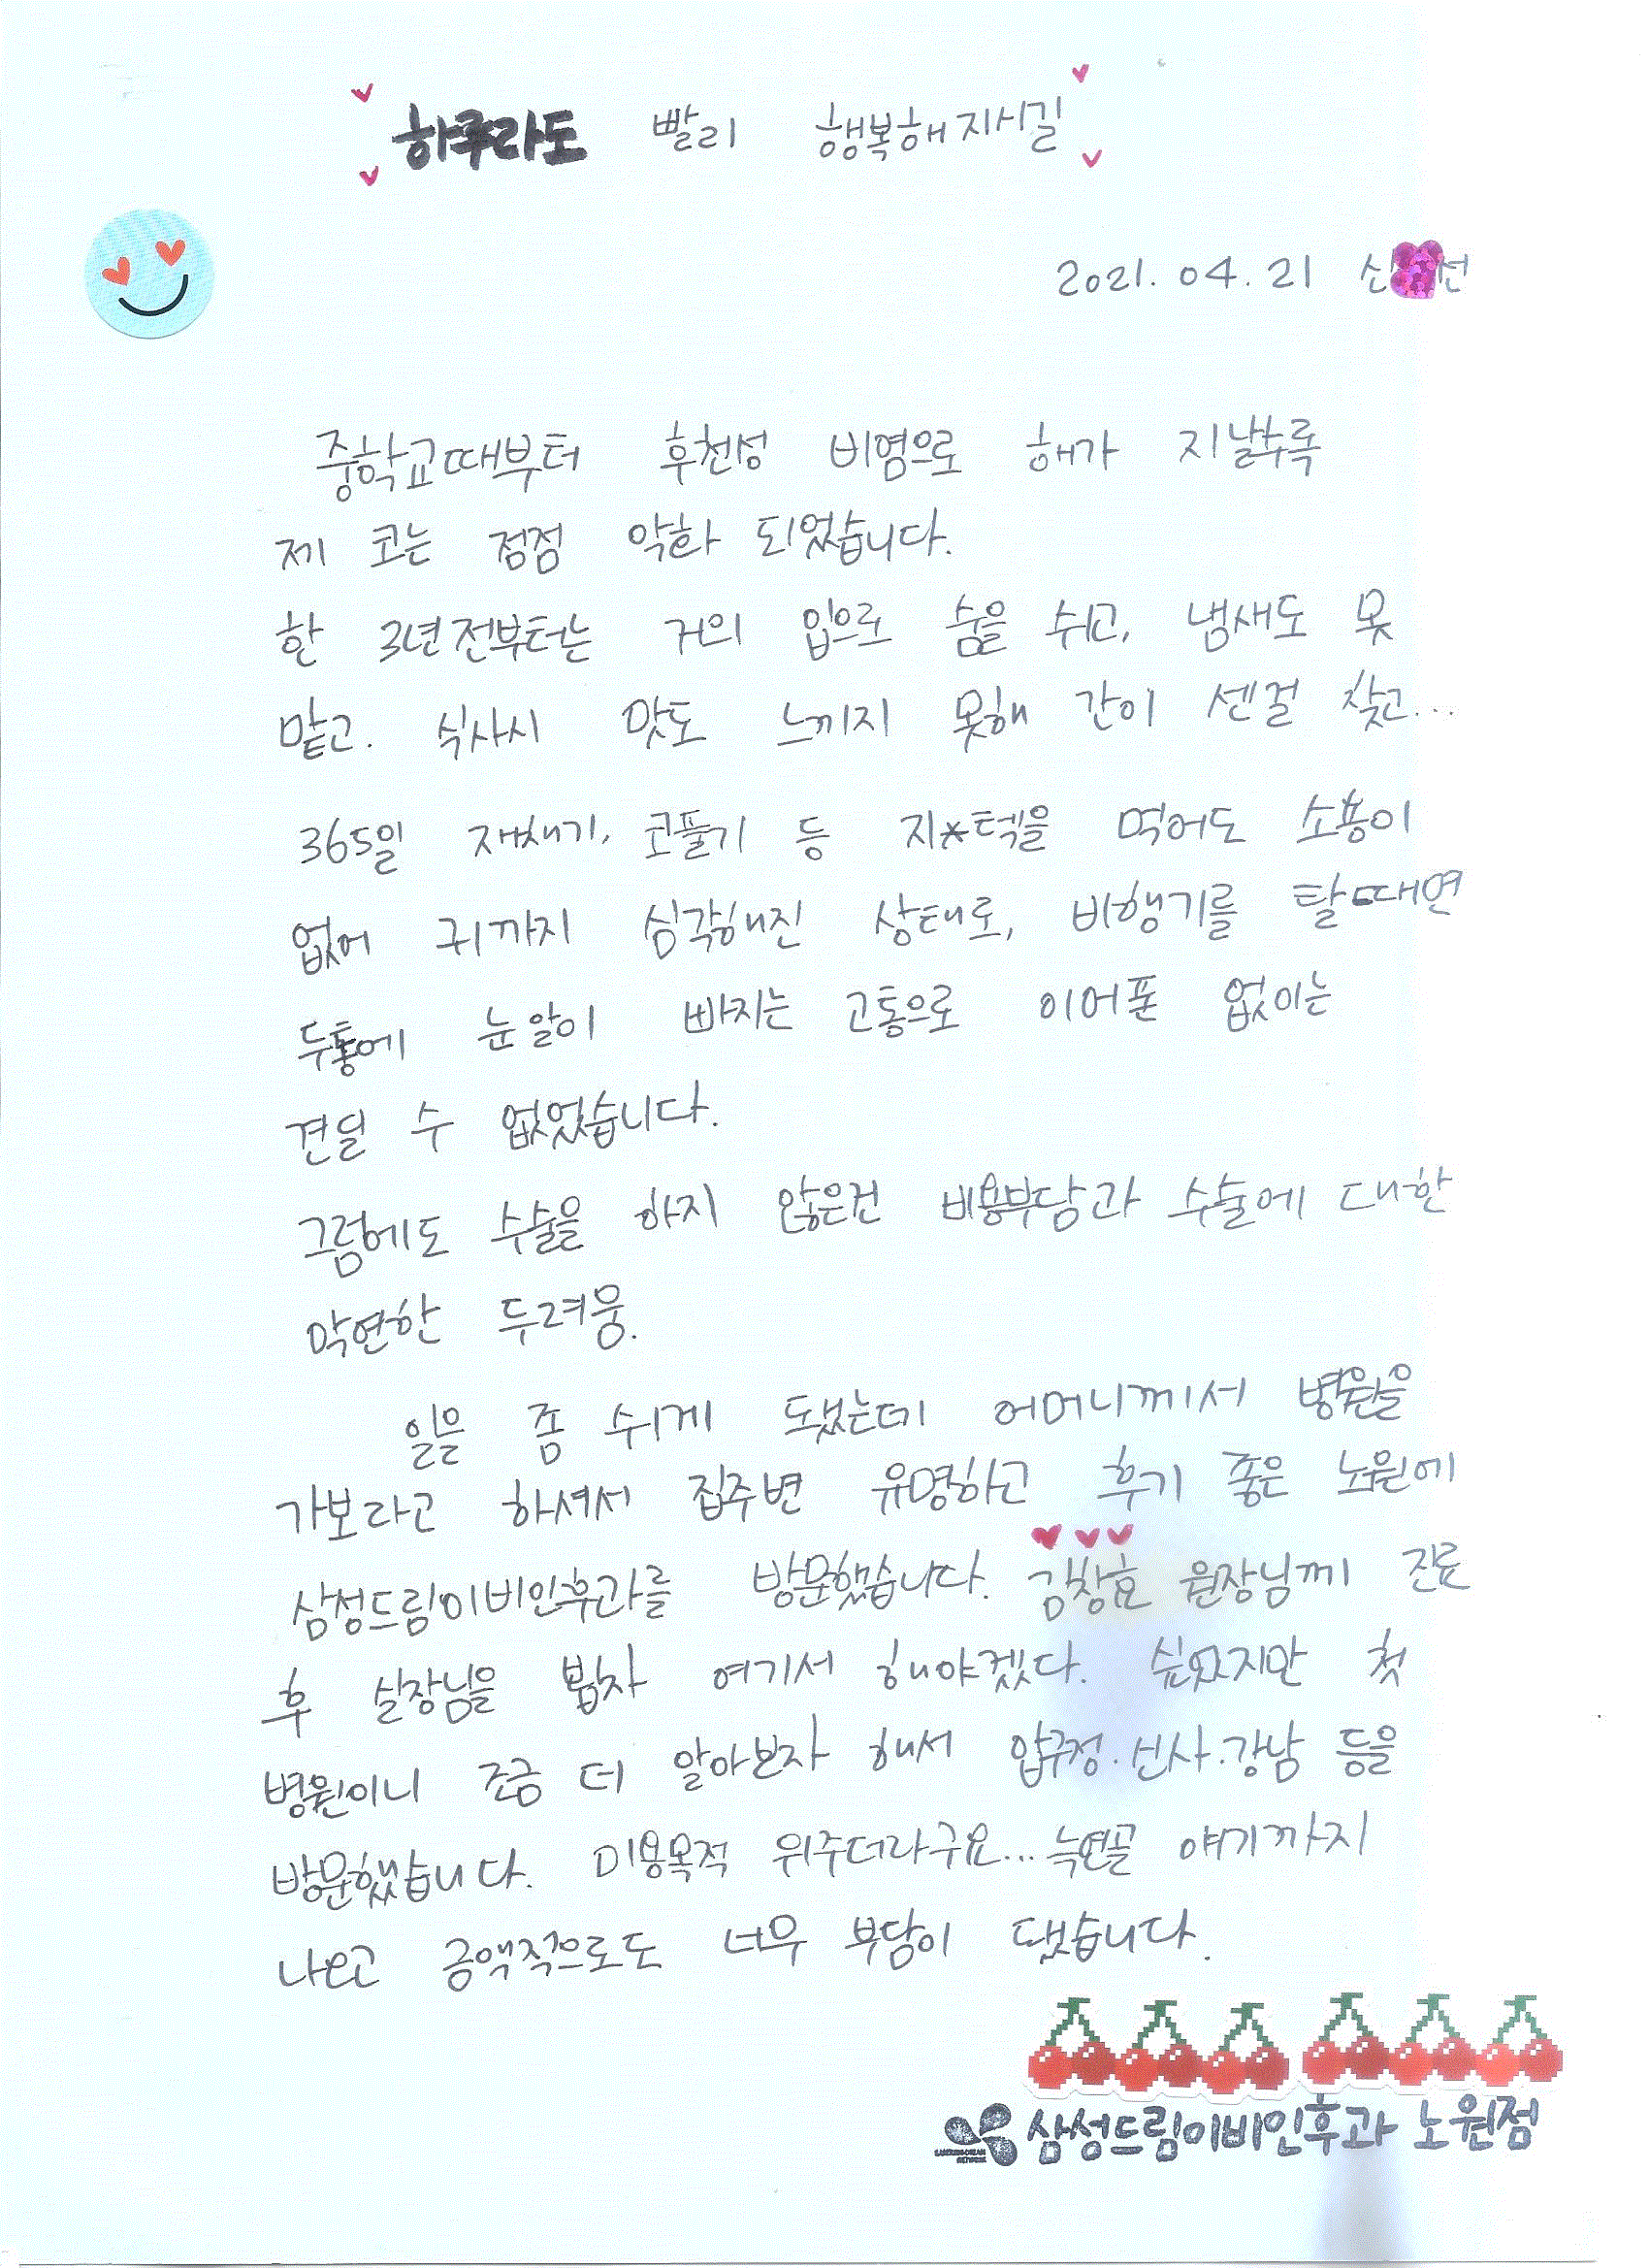 하루라도 빨리 행복해지시길
2021. 04. 21 신 선
중학교때부터 후천성 비염으로 해가 지날수록
제 코는 점점 악화 되었습니다.
한 3년전부터는 거의 입으로 숨을 쉬고, 냄새도 못
맡고. 식사시 맛도 느끼지 못해 간이 센걸 찾고...
365일 재채기, 코풀기 등 지*텍을 먹어도 소용이
없어 귀까지 심각해진 상태로, 비행기를 탈때면
두통에 눈알이 빠지는 고통으로 이어폰 없이는
견딜 수 없었습니다.
그럼에도 수술을 하지 않은건 비용부담과 수술에 대한
막연한 두려움.
일을 좀 쉬게 됐는데 어머니께서 병원을
가보라고 하셔서 집주변 유명하고 후기 좋은 노원에
삼성드림이비인후과를 방문했습니다. 김창효 원장님께 진료
후 실장님을 뵙자 여기서 해야겠다. 싶었지만 첫
병원이니 조금 더 알아보자 해서 압구정.신사.강남 등을
방문했습니다. 미용목적 위주더라구요...늑연골 얘기까지
나오고 금액적으로도 너무 부담이 됐습니다.
삼성드림이비인후과 노원점